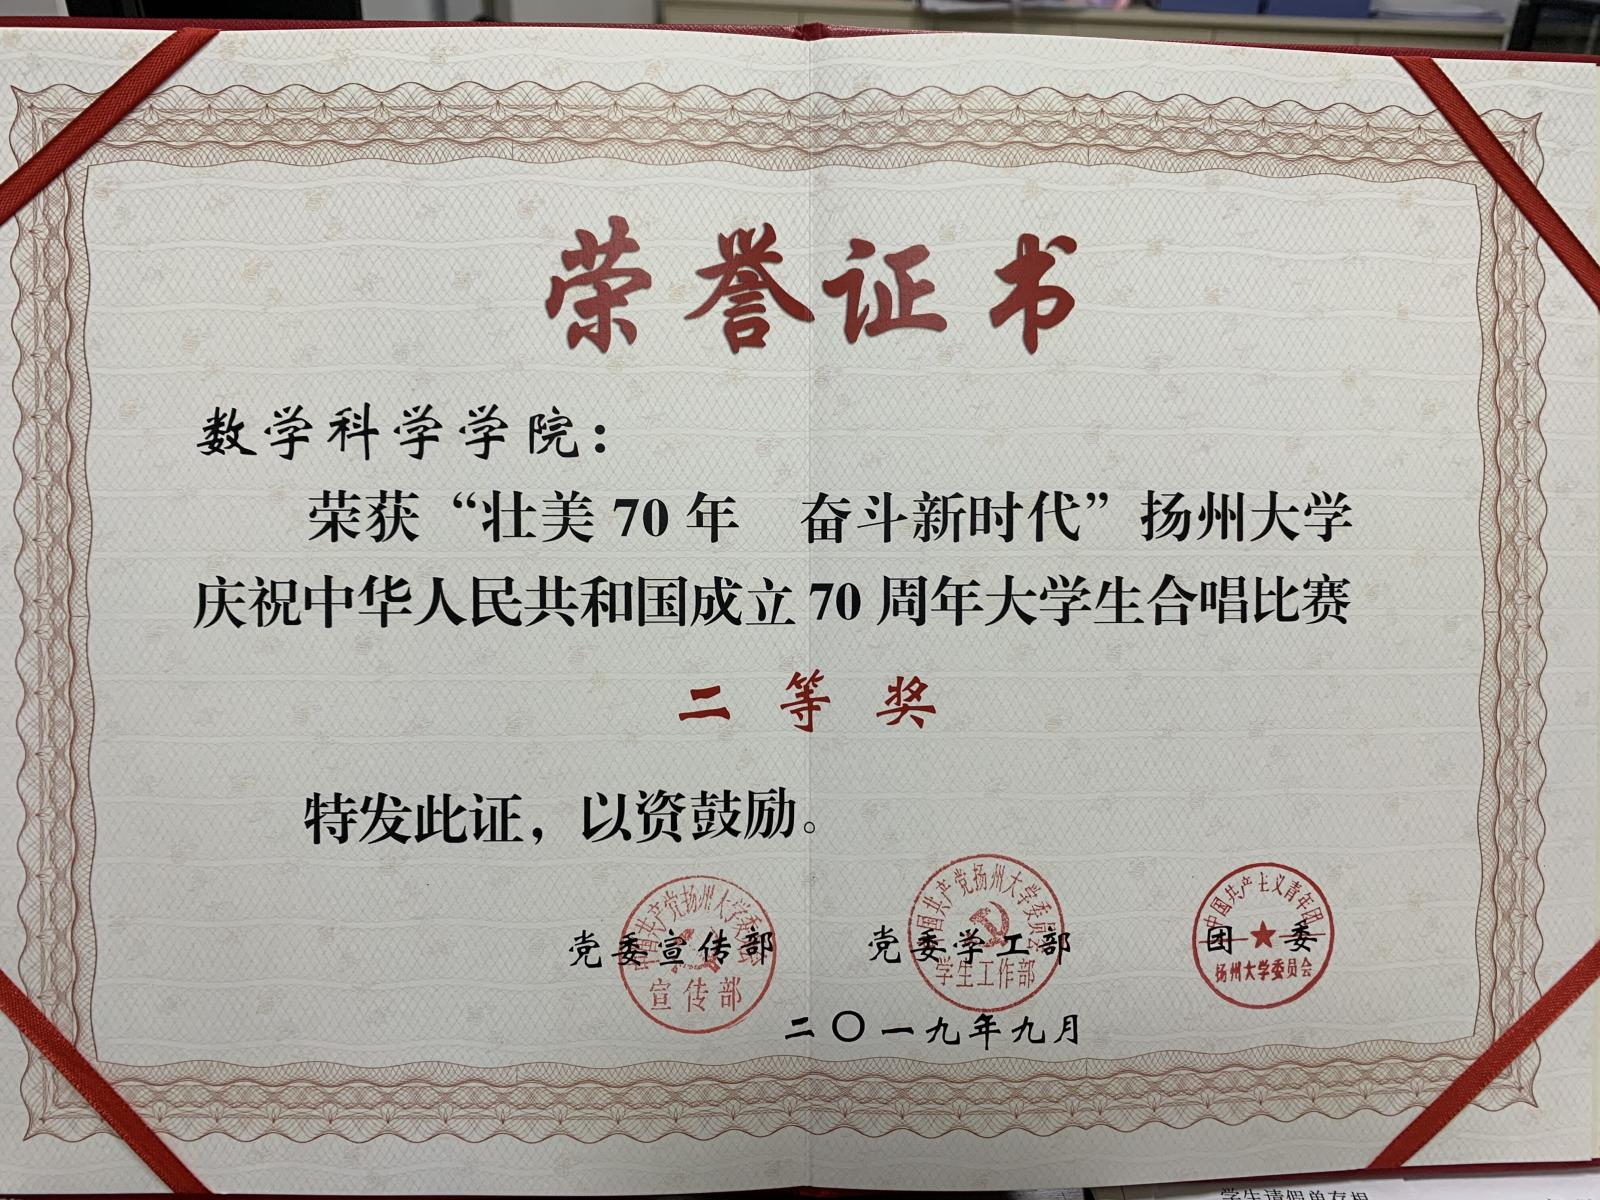 荣誉证书
数学科学学院：
荣获“壮美70年 奋斗新时代”扬州大学
庆祝中华人民共和国成立70周年大学生合唱比赛
二等奖
特发此证，以资鼓励。
党委宣传部 党委学工部 团委
中国共产党扬州大学委员会
宣传部
中国共产党扬州大学委员会
学生工作部
中国共产主义青年团
扬州大学委员会
二〇一九年九月
学生请假单存根